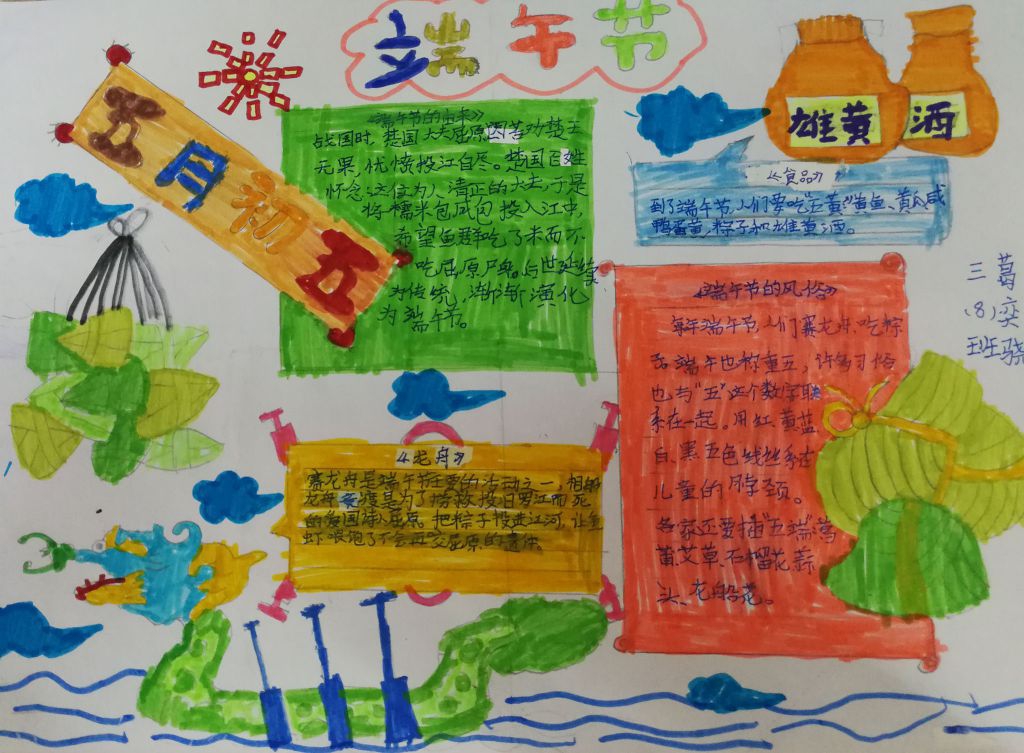 端午节
五月初五
雄黄 酒
《端午节的由来》
战国时,楚国大夫屈原因苦劝楚王
无果,忧愤投江自尽。楚国百姓
怀念这位为人清正的大夫,于是
将糯米包成团投入江中,
希望鱼群吃了米而不
吃屈原尸身。后世延续
为传统,渐渐演化
为端午节。
《食品》
到了端午节,人们要吃"五黄"黄鱼、黄瓜、咸
鸭蛋黄,粽子和雄黄酒。
三葛
(8)奕
班骁
《端午节的风俗》
每年端午节,人们赛龙舟、吃粽
子端午也称重五,许多习俗
也与"五"这个数字联
系在一起。用红黄蓝
白、黑五色线丝系在
儿童的脖颈。
各家还要插"五端"菖
蒲、艾草、石榴花、蒜
头、龙船花。
《龙舟》
赛龙舟是端午节主要的活动之一,相
龙舟竞渡是为了捞救投汨罗江而死
的爱国诗人屈原。把粽子投进江河,让鱼
虾喂饱了不会再屈原的遗体。